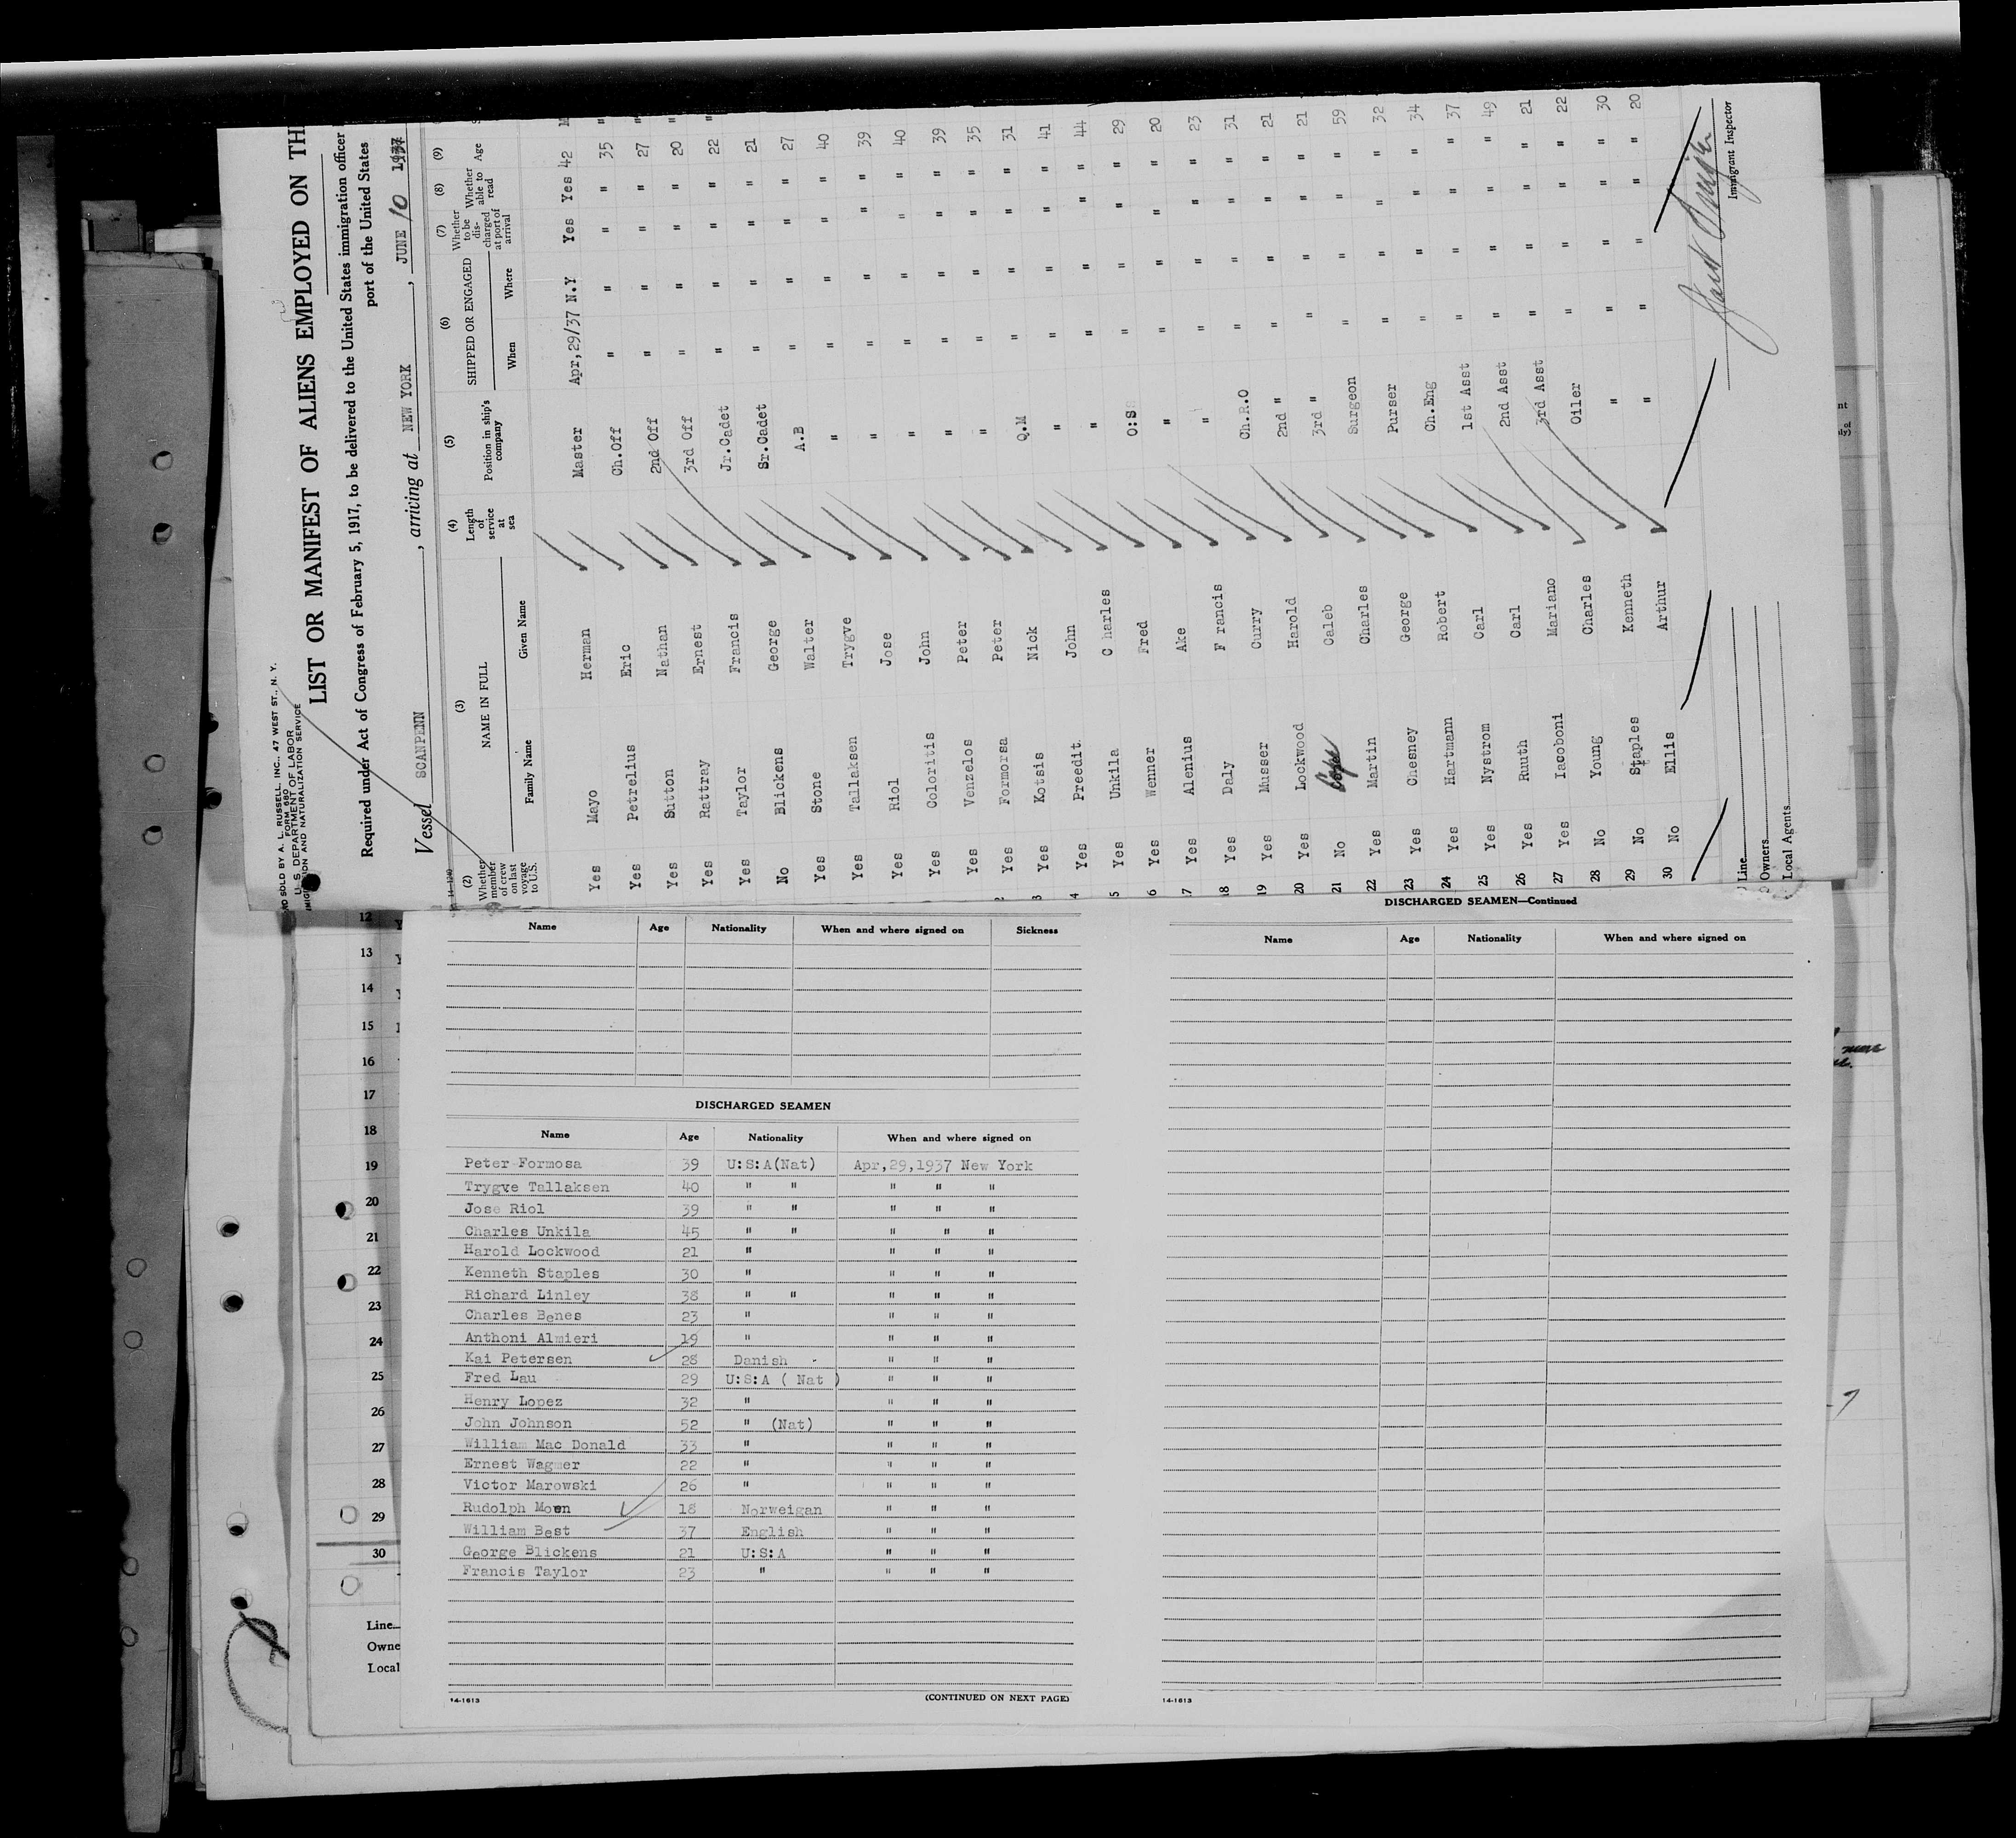 RD SOLD BY A. L. RUSSELL, INC., 47 WEST ST., N. Y.
FORM 680
U. S. DEPARTMENT OF LABOR
IMMIGRATION AND NATURALIZATION SERVICE
LIST OR MANIFEST OF ALIENS EMPLOYED ON TH
Required under Act of Congress of February 5, 1917, to be delivered to the United States immigration officer
port of the United States
Vessel SCANPENN, arriving at NEW YORK, JUNE 10 1937
(2) (3) (4) (5) (6) (7) (8) (9)
Whether member of crew on last voyage to U.S. NAME IN FULL Length of service at sea Position in ship's company SHIPPED OR ENGAGED Whether to be discharged at port of arrival Whether able to read Age
Family Name Given Name When Where
Yes Mayo Herman Master Apr,29/37 N.Y Yes Yes 42 M
Yes Petrelius Eric Ch.Off " " " " 35 "
Yes Sutton Nathan 2nd Off " " " " 27 "
Yes Rattray Ernest 3rd Off " " " " 20 "
Yes Taylor Francis Jr.Cadet " " " " 22 "
No Blickens George Sr.Cadet " " " " 21
Yes Stone Walter A.B " " " " 27
Yes Tallaksen Trygve " " " " " 40
Yes Riol Jose " " " " " 39
Yes Coloritis John " " " " " 40
Yes Venzelos Peter " " " " " 39
Yes Formorsa Peter " " " " " 35
3 Yes Kotsis Nick Q.M " " " " 31
4 Yes Preedit John " " " " " 41
5 Yes Unkila C harles " " " " " 44
6 Yes Wenner Fred O:S " " " " 29
17 Yes Alenius Ake " " " " " 20
18 Yes Daly F rancis " " " " " 23
19 Yes Musser Curry Ch.R.O " " " " 31
20 Yes Lockwood Harold 2nd " " " " " 21
21 No Cope Caleb 3rd " " " " " 21
22 Yes Martin Charles Surgeon " " " " 59
23 Yes Chesney George Purser " " " " 32
24 Yes Hartmann Robert Ch.Eng " " " " 34
25 Yes Nystrom Carl 1st Asst " " " " 37
26 Yes Ruuth Carl 2nd Asst " " " " 49
27 Yes Iacoboni Mariano 3rd Asst " " " " 21
28 No Young Charles Oiler " " " " 22
29 No Staples Kenneth " " " " " 30
30 No Ellis Arthur " " " " " 20
Line
Owners
Local Agents
Immigrant Inspector
Name Age Nationality When and where signed on Sickness
DISCHARGED SEAMEN
Name Age Nationality When and where signed on
Peter Formosa 39 U:S:A(Nat) Apr,29,1937 New York
Trygve Tallaksen 40 " " " " "
Jose Riol 39 " " " " "
Charles Unkila 45 " " " " "
Harold Lockwood 21 " " " "
Kenneth Staples 30 " " " "
Richard Linley 38 " " " " "
Charles Benes 23 " " " "
Anthoni Almieri 19 " " " "
Kai Petersen 28 Danish " " "
Fred Lau 29 U:S:A ( Nat ) " " "
Henry Lopez 32 " " " "
John Johnson 52 " (Nat) " " "
William Mac Donald 33 " " " "
Ernest Wagmer 22 " " " "
Victor Marowski 26 " " " "
Rudolph Moen 18 Norweigan " " "
William Best 37 English " " "
George Blickens 21 U:S:A " " "
Francis Taylor 23 " " " "
14-1613 (CONTINUED ON NEXT PAGE)
DISCHARGED SEAMEN—Continued
Name Age Nationality When and where signed on
14-1613
12
13
14
15
16
17
18
19
20
21
22
23
24
25
26
27
28
29
30
Line
Owne
Local